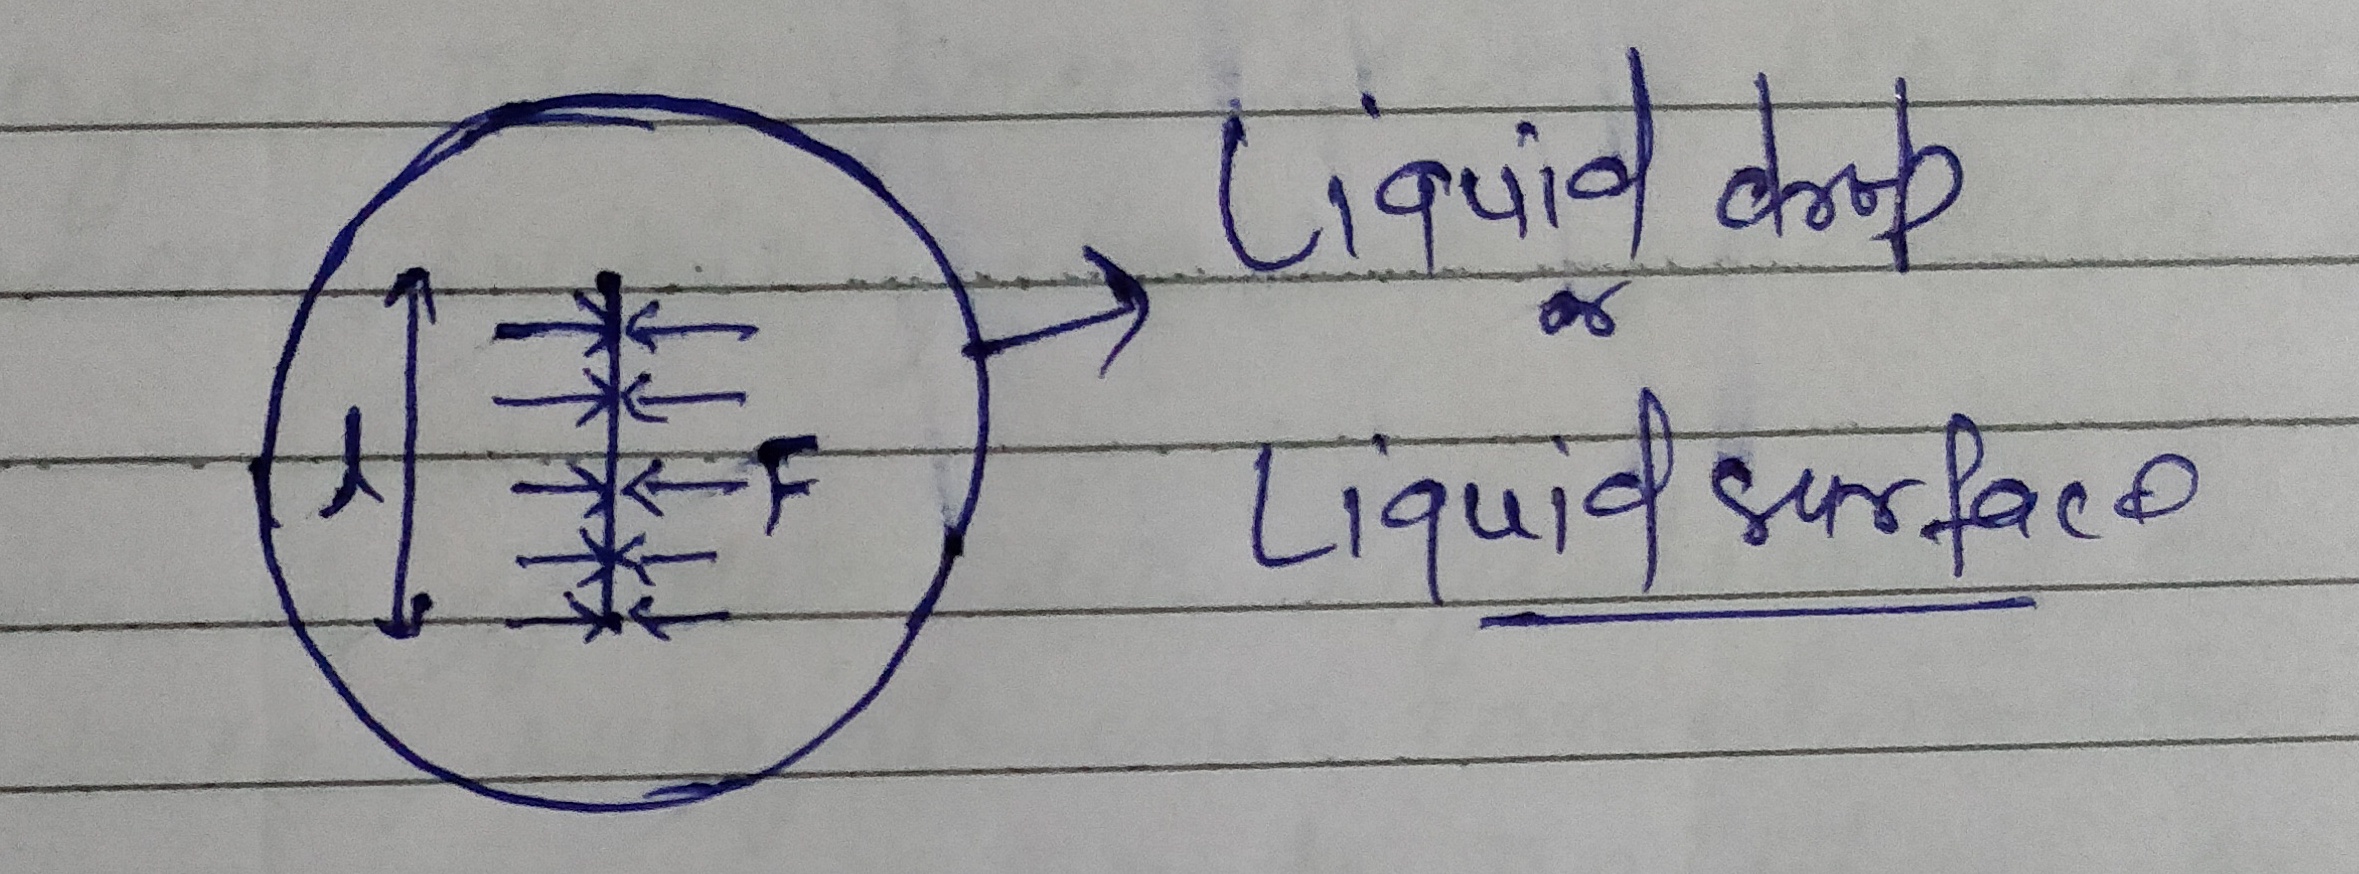 Liquid drop
or
l
F
Liquid surface